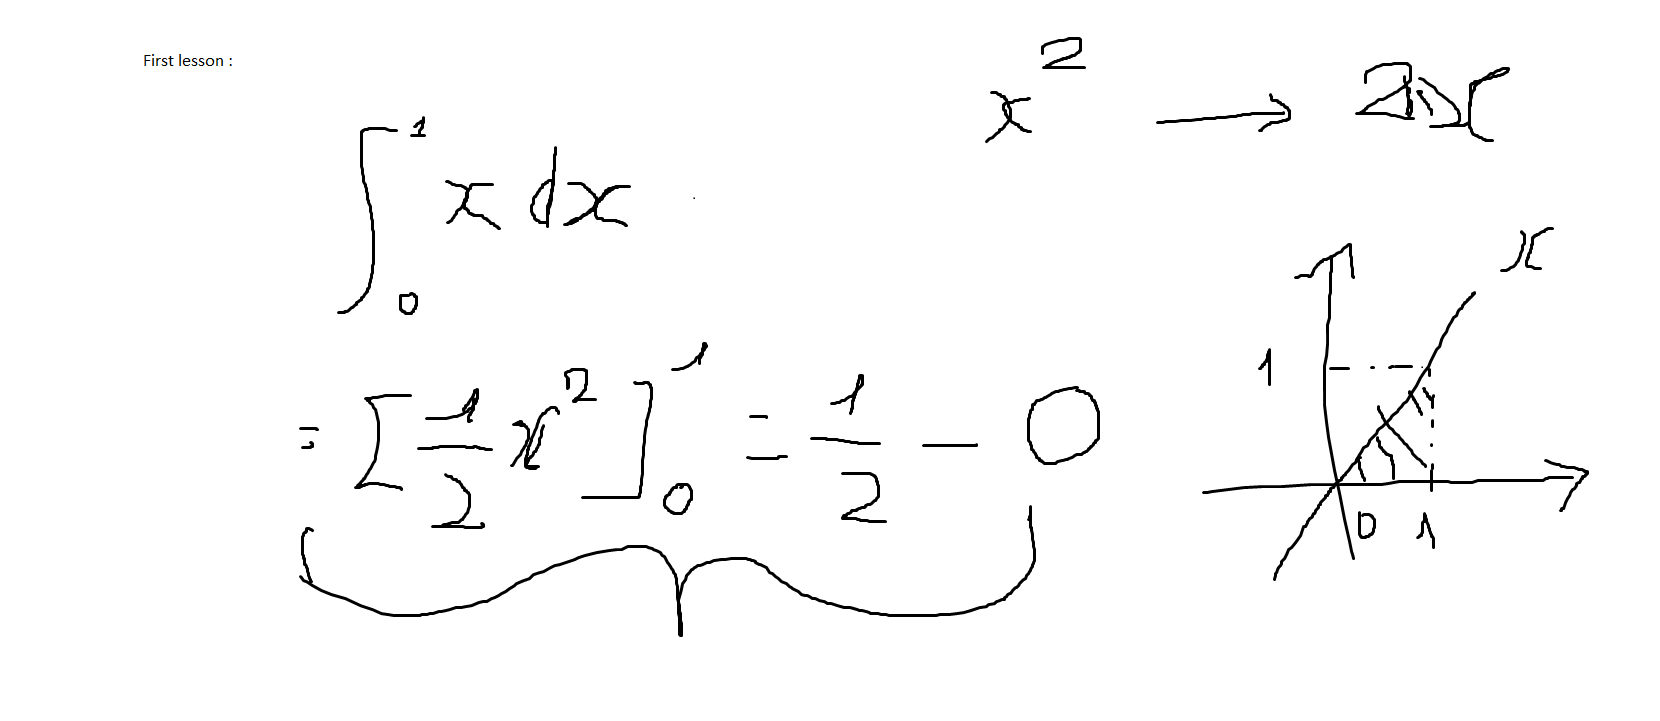 First lesson :
x² → 2x
∫₀¹ x dx
= [1/2 x²]₀¹ = 1/2 − 0
x
1
0 1